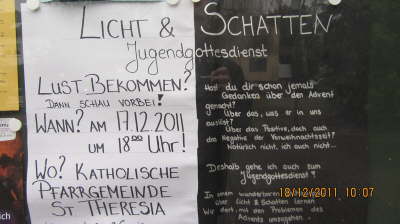 LICHT & SCHATTEN
Jugendgottesdienst
LUST BEKOMMEN?
DANN SCHAU VORBEI!
WANN? AM 17.12.2011
UM 18:00 UHR!
WO? KATHOLISCHE
PFARRGEMEINDE
ST THERESIA
Hast du dir schon jemals
Gedanken über den Advent
gemacht?
Über das, was er in uns
auslöst?
Über das Positive, doch auch
das Negative der Vorweihnachtszeit?
Natürlich nicht, ich auch nicht...
Deshalb gehe ich auch zum
Jugendgottesdienst!
In einem wunderbaren
über Licht & Schatten lernen
Wir dort, mit den Problemen des
Advents umzugehen.
18/12/2011 10:07